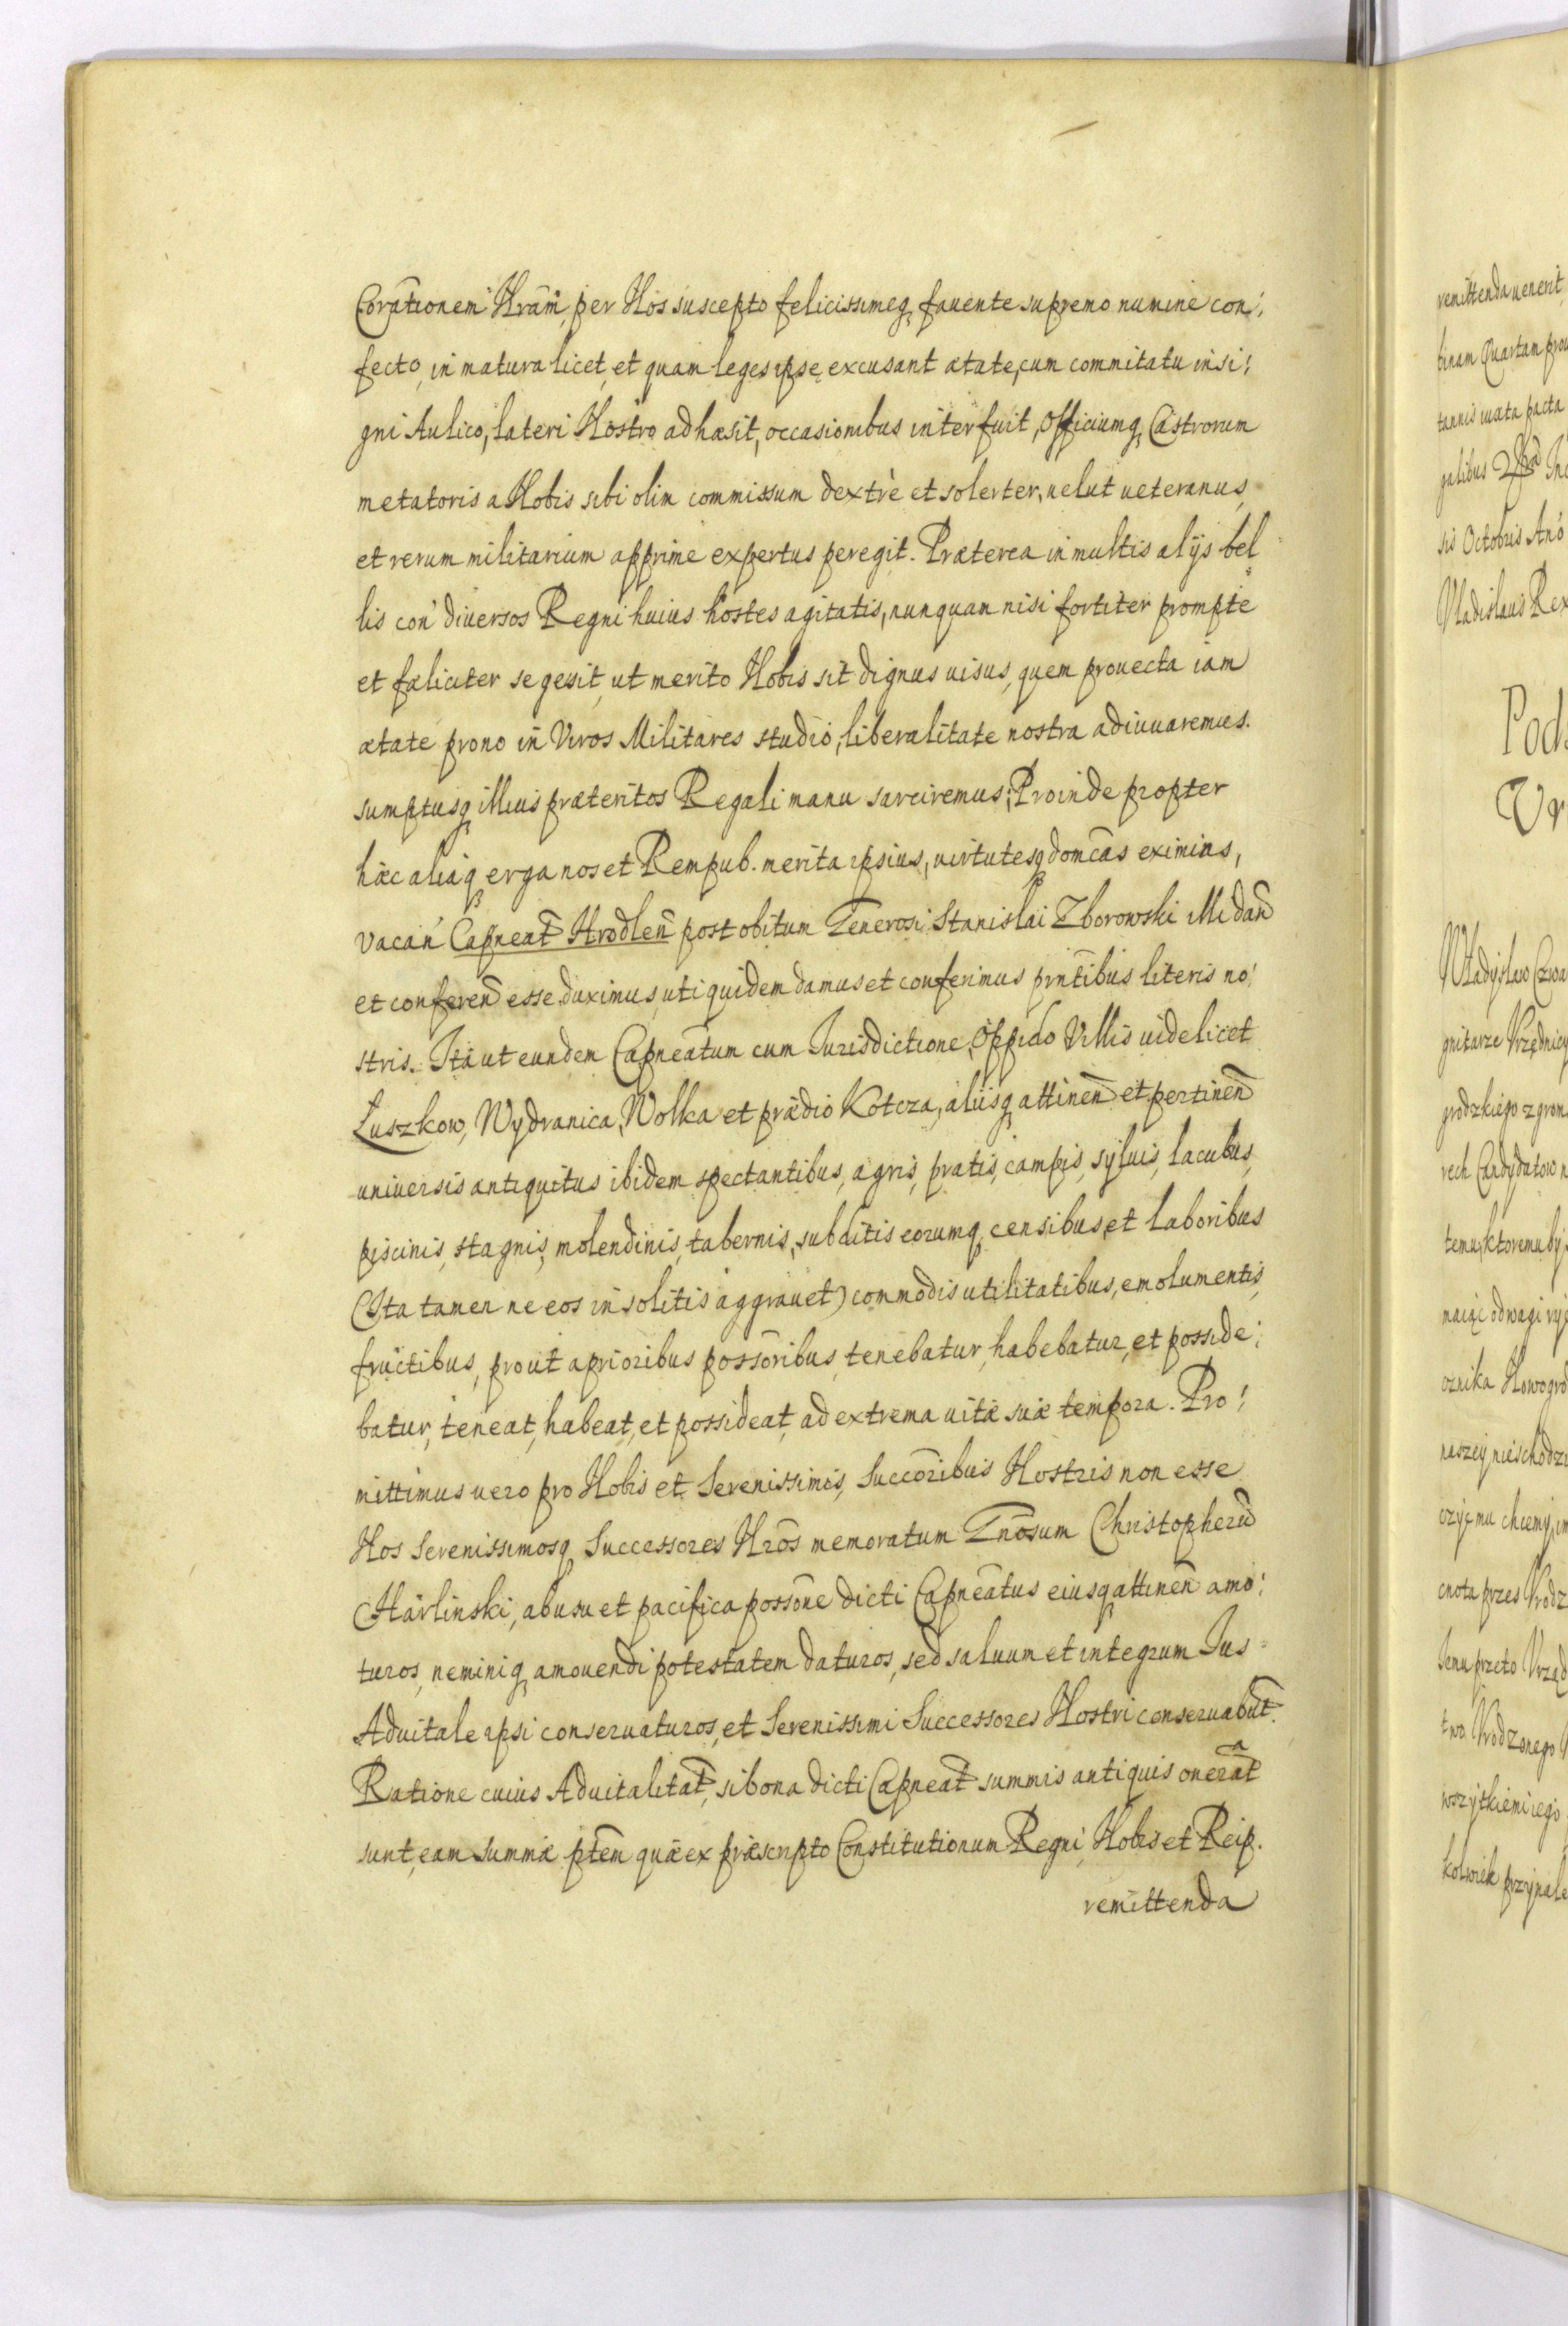 Corãtionem Nrãm, per Nos suscepto felicissimeq₃ fauente supremo numine con:
fecto, in matura licet, et quam leges ipse excusant ætate, cum commitatu insi:
gni Aulico, lateri Nostro adhæsit, occasionibus interfuit, Officiumq₃ Castrorum
metatoris a Nobis sibi olim commissum dextrè et solerter, uelut ueteranus,
et rerum militarium apprime expertus peregit. Præterea in multis alijs bel:
lis con' diuersos Regni huius hostes agitatis, nunquam nisi fortiter prompte
et fæliciter se gesit, ut merito Nobis sit dignus uisus, quem prouecta iam
ætate prono in Viros Militares studio, liberalitate nostra adiuuaremus.
sumptusq₃ illius præteritos Regali manu sarciremus; Proinde propter
hæc aliaq₃ erga nos et Rempub. merita ipsius, uirtutesq₃ domcãs eximias,
vacan' Capneat̃ Hrodleñ post obitum Generosi Stanislai Zborowski Illi dañ
et confereñ esse duximus, uti quidem damus et conferimus prñtibus literis no:
stris. Ita ut eundem Capneãtum cum Jurisdictione, Oppido Villis uidelicet
Łuszkow, Wydranica, Wolka et prædio Kotcza, aliisq₃ attineñ et pertineñ
uniuersis antiquitus ibidem spectantibus, agris, pratis, campis, syluis, lacubus,
piscinis, stagnis, molendinis, tabernis, subditis eorumq₃ censibus, et laboribus
(Ita tamen ne eos insolitis aggrauet) commodis utilitatibus, emolumentis,
fructibus, prout a prioribus possõribus, tenebatur, habebatur, et posside:
batur, teneat, habeat, et possideat, ad extrema uitæ suæ tempora. Pro:
mittimus uero pro Nobis et Serenissimis, Succõribus Nostris non esse
Nos Serenissimosq₃ Successores Nrõs memoratum Gnõsum Christopherũ
Charlinski, ab usu et pacifica possõne dicti Capneãtus eiusq₃ attineñ amo:
turos, neminiq₃ amouendi potestatem daturos, sed saluum et integrum Jus
Aduitale ipsi conseruaturos, et Serenissimi Successores Nostri conseruabũt.
Ratione cuius Aduitalitat̃, si bona dicti Capneat̃ summis antiquis onerat̃a
sunt, eam summæ ptẽm quæ ex præscripto Constitutionum Regni, Nobis et Reip.
remittenda
remittenda uenerit,
binam Quartam prou
tannis iuxta pacta
galibus
sis Octobris Anõ
Vladislaus Rex
Pod
Ur
Władysław Czwa
gnitarze Vrzędnicy
grodzkiego z gron
rech Candydatow n
temu, ktoremu by
maiąc odwagi ryc
oznika Nowogrod
naszey nieschodzi
czyć mu chcemy, im
cnota przes Vrodz
Temu przeto Vrzęd
two Vrodzonego
wszytkiemi iego
kolwiek przynale